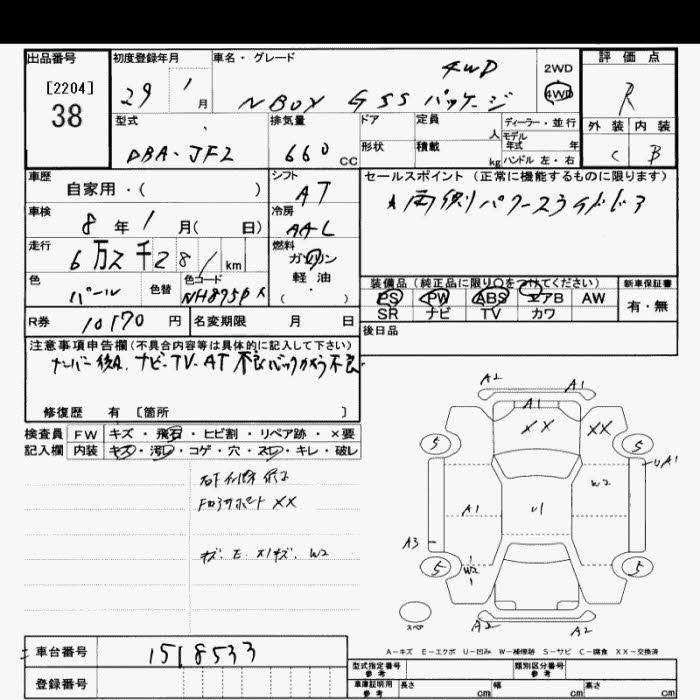 出品番号 初度登録年月 車名・グレード 評価点
[2204] 38
29 1 月
N BOX G SS パッケージ 4WD
2WD
4WD
R
型式 排気量 ドア 定員 人 ディーラー・並行
モデル年式 年
外装 内装
DBA-JF2 660 CC
形状 積載 kg ハンドル 左・右
C B
車歴 自家用・( ) シフト AT
セールスポイント (正常に機能するものに限ります)
車検 8年1月( 日) 冷房 AAC
走行 6万2千281km 燃料 ガソリン
軽・油
( )
色 パール 色替 色コード NH875P
装備品 (純正品に限り○をつけてください) 新車保証書
PS PW ABS エアB AW 有・無
SR ナビ TV カワ
R券 10170円 名変期限 月 日
後日品
注意事項申告欄(不具合内容等は具体的に記入して下さい)
ナビ・TV・AT 不良 バックカメラ不良
修復歴 有 [箇所 ]
検査員 FW キズ・飛石・ヒビ割・リペア跡・×要
記入欄 内装 キズ・汚レ・コゲ・穴・スレ・キレ・破レ
XX
キズ、E、W2
A2 A1
A1
XX XX
5 5
UA1
W2
A1 U1
A3
5 W2 5
スペア
A2 A2
A-キズ E-エクボ U-凹み W-補修跡 S-サビ C-腐食 XX-交換済
車台番号 1518533
登録番号
型式指定番号 参考 類別区分番号 参考
車庫証明用 参考 長さ cm 幅 cm 高さ cm